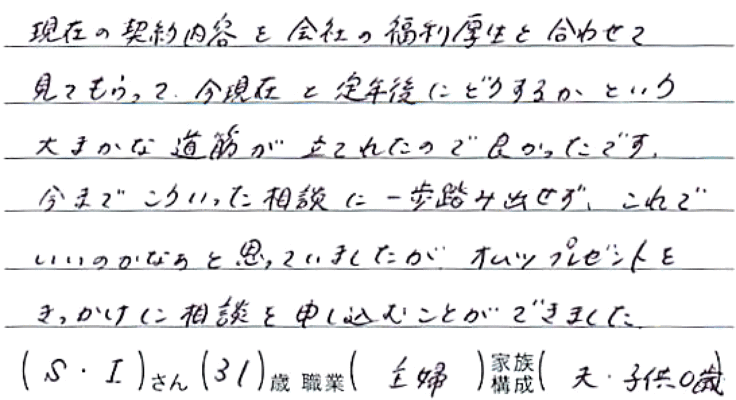 現在の契約内容を会社の福利厚生と合わせて
見てもらって、今現在と定年後にどうするかという
大まかな道筋が立てれたので良かったです。
今までこういった相談に一歩踏み出せず、これで
いいのかなぁと思っていましたが オムツプレゼントを
きっかけに相談を申し込むことができました
(S・I)さん(31)歳 職業(主婦)家族構成(夫・子供0歳)